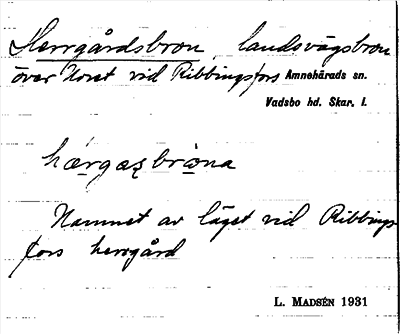 Herrgårdsbron, landsvägsbron
över Noret vid Ribbingsfors Amnehärads sn.
Vadsbo hd. Skar. l.
Namnet av läget vid Ribbings
fors herrgård
L. MADSÉN 1931